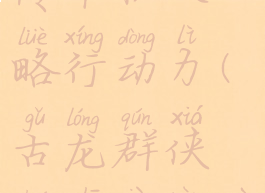 lüè xíng dòng lì
略行动力(
gǔ lóng qún xiá
古龙群侠